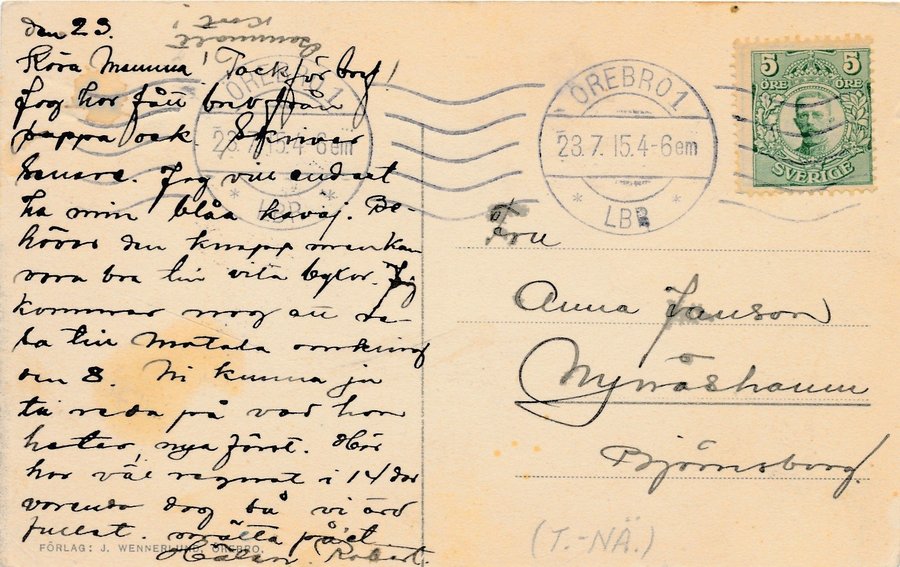 den 23.
Gammalt
kort!
Kära Mamma! Tack för bref!
Jag har fått brev från
pappa och skriver
senare. Jag vill endast
ha min blåa kavaj. Be-
höver den knappt men kan
vara bra till vita byxor. Jag
kommer nog att
till Motala omkring
den 8. Ni kunna ju
ta reda på vad hon
heter, nya först. Här
har väl regnat i 14 dar
varenda dag så vi
Hälsn. Robert.
FÖRLAG: J. WENNERLUND, ÖREBRO.
ÖREBRO 1
23.7.15.4-6em
LBR
ÖREBRO 1
23.7.15.4-6em
LBR
5 5
ÖRE ÖRE
SVERIGE
Fru
Anna Janson
Nynäshamn
Björnsborg
(T.-NÄ.)